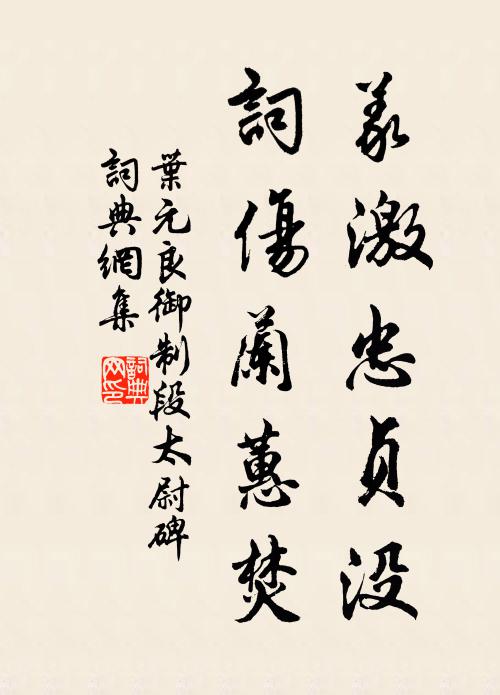 義激忠貞没
詞傷蘭蕙焚
葉元良御制段太尉碑
詞典網集
詞典网印